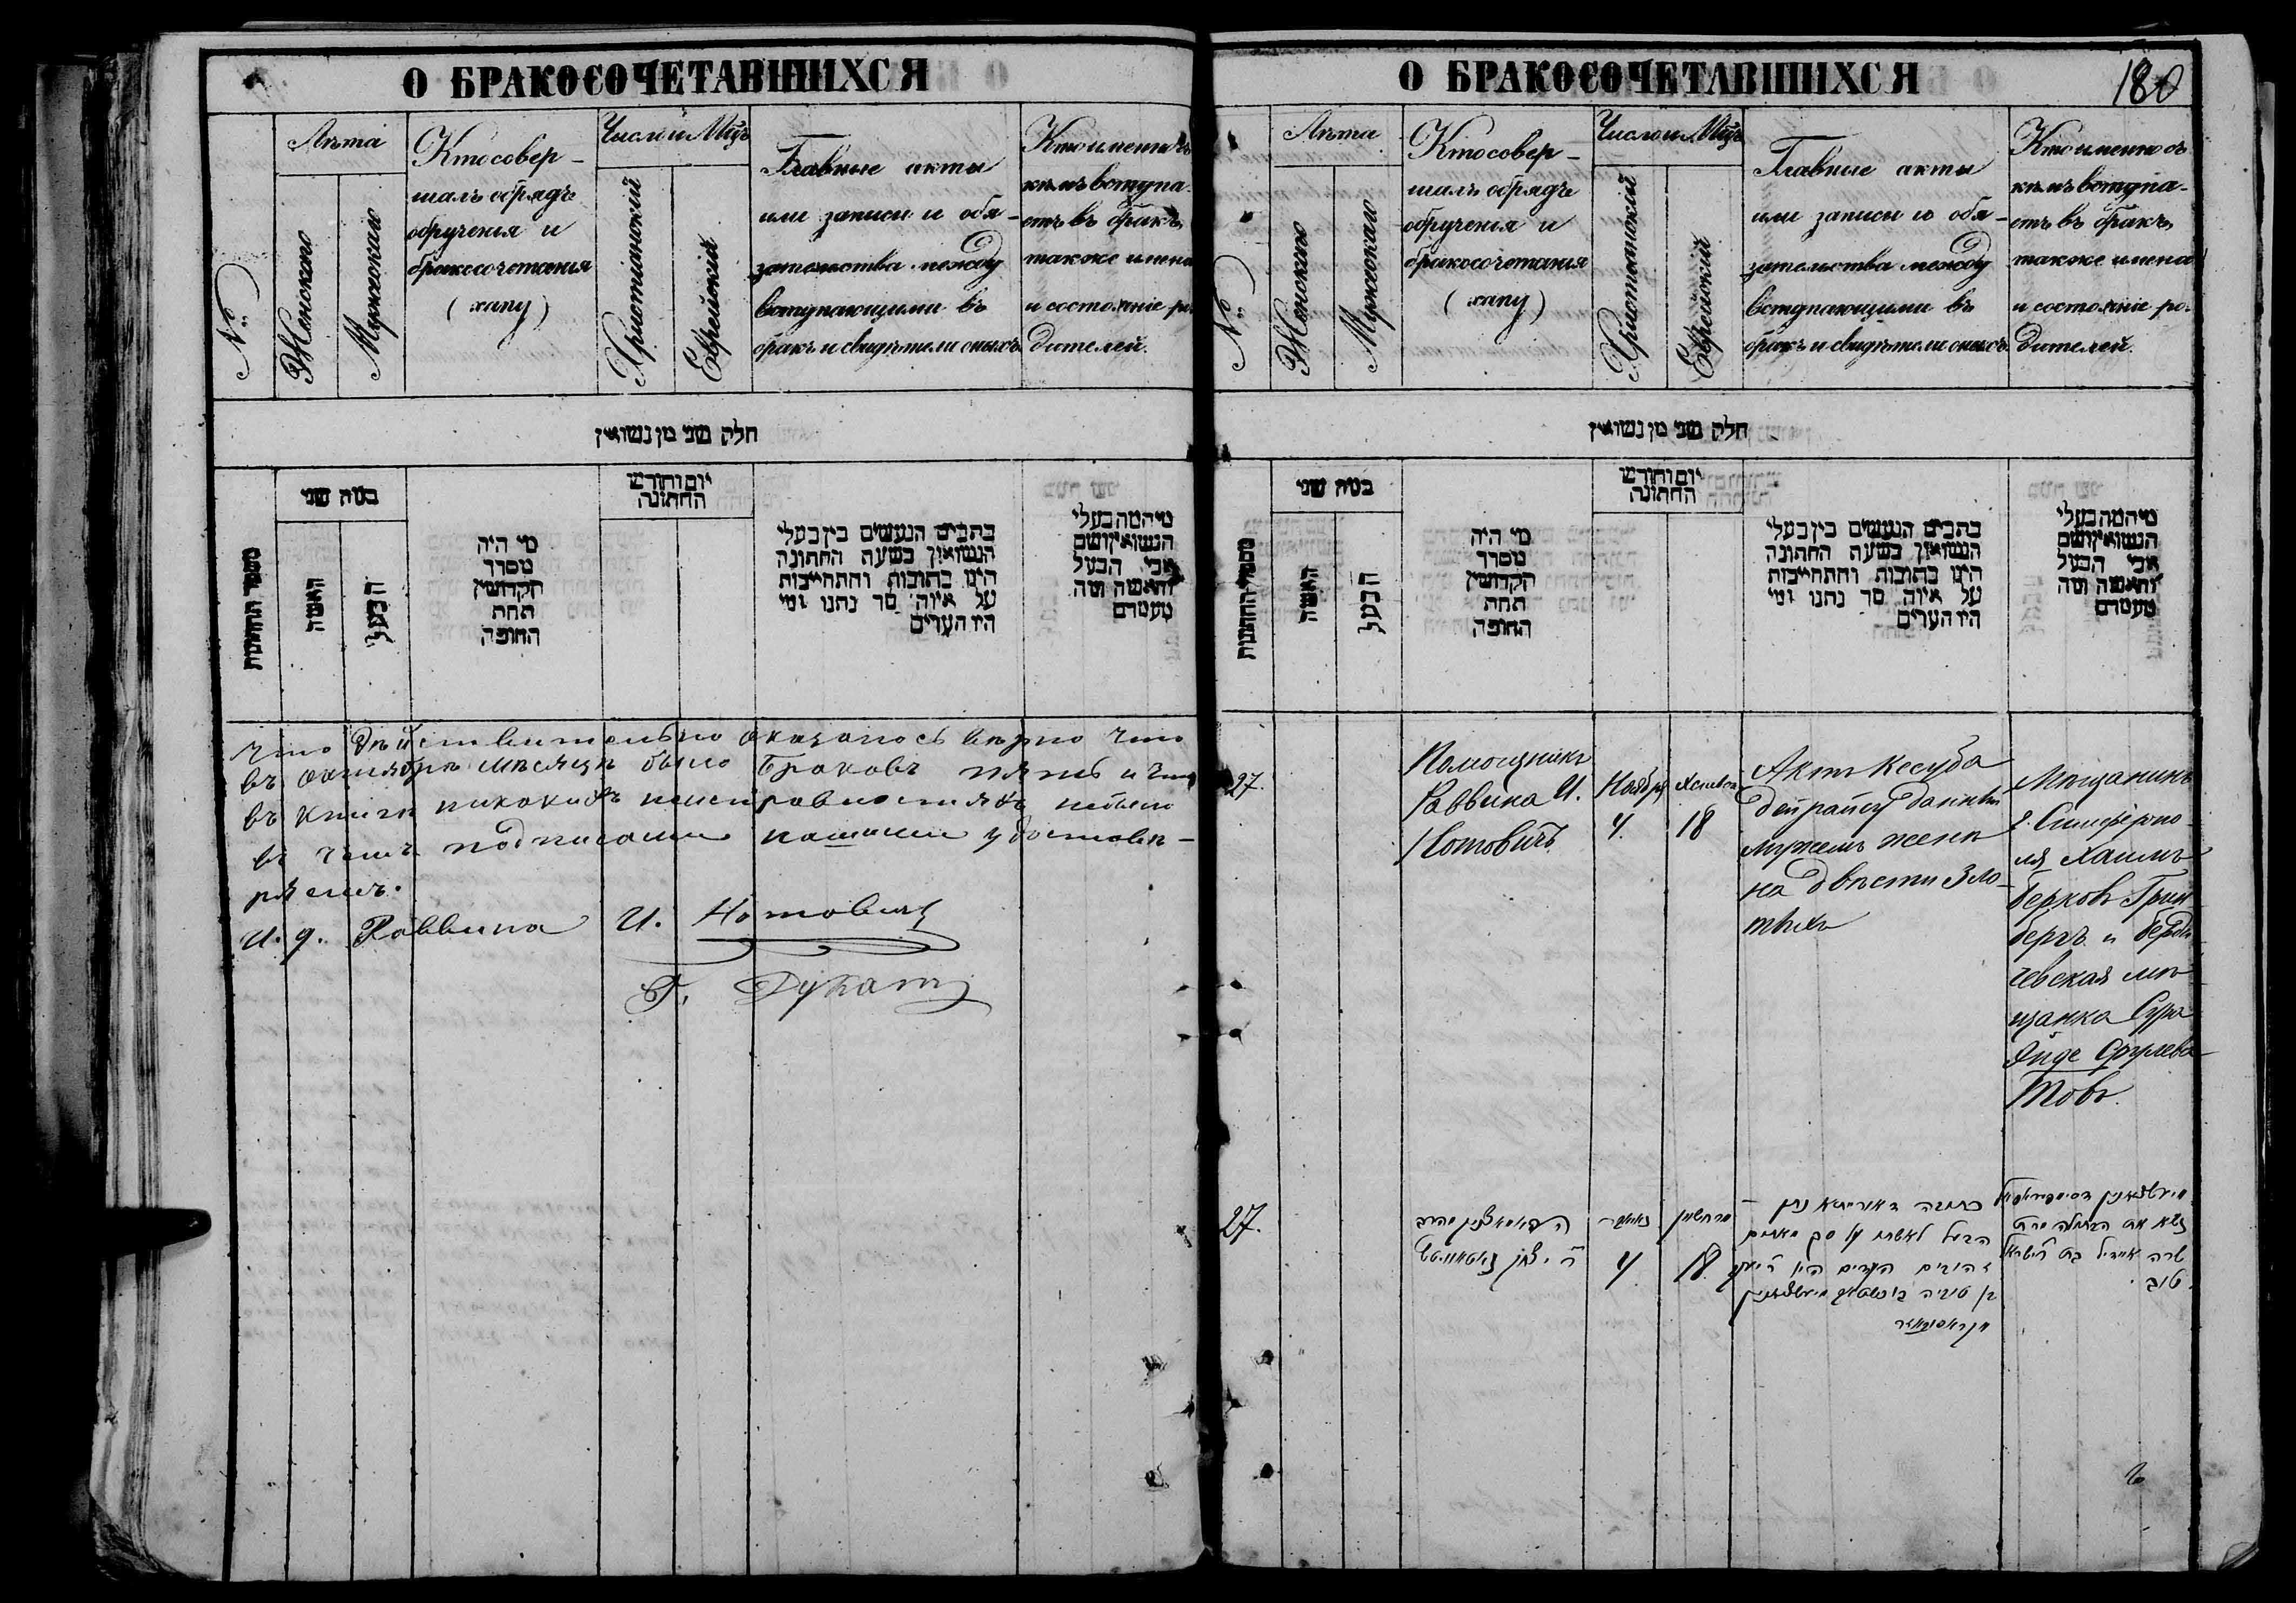 О БРАКОСОЧЕТАВШИХСЯ
№
Лѣта
Женскаго
Мужскаго
Кто совер-
шалъ обрядъ
обрученія и
бракосочетанія
(хапу)
Число и Мцъ
Христіанскій
Еврейскій
Главные акты
или записи и обя-
зательства между
вступающими въ
бракъ и свидѣтели оныхъ
Кто именно съ
кѣмъ вступа-
етъ въ бракъ,
также имена
и состояніе ро-
дителей.
חלק שני מן נשואין
מספר החתונות
כמה שני
האשה
הבעל
מי היה
מסדר
הקדושין
תחת
החופה
יום וחודש
החתונה
כתבים הנעשים בין בעלי
הנשואין בשעת החתונה
היינו כתובות והתחייבות
על איזה סך נתנו ומי
היו העדים
מי המה בעלי
הנשואין ושם
אבי הבעל
והאשה ומה
מעמדם
что дѣйствительно оказалось вѣрно что
въ октябрѣ мѣсяцѣ было браковъ пять и что
въ книгѣ никакихъ неисправностяхъ небыло
въ чемъ подписами нашими удостовѣ-
ряемъ.
И. д. Раввина И. Нотовичъ
Г. Дукатъ
О БРАКОСОЧЕТАВШИХСЯ
180
№
Лѣта
Женскаго
Мужскаго
Кто совер-
шалъ обрядъ
обрученія и
бракосочетанія
(хапу)
Число и Мцъ
Христіанскій
Еврейскій
Главные акты
или записи и обя-
зательства между
вступающими въ
бракъ и свидѣтели оныхъ
Кто именно съ
кѣмъ вступа-
етъ въ бракъ,
также имена
и состояніе ро-
дителей.
חלק שני מן נשואין
מספר החתונות
כמה שני
האשה
הבעל
מי היה
מסדר
הקדושין
תחת
החופה
יום וחודש
החתונה
כתבים הנעשים בין בעלי
הנשואין בשעת החתונה
היינו כתובות והתחייבות
על איזה סך נתנו ומי
היו העדים
מי המה בעלי
הנשואין ושם
אבי הבעל
והאשה ומה
מעמדם
27.
Помощникъ
Раввина И.
Нотовичъ
Ноября
4.
18
Актъ Кесуба
дейрайсу данъ
мужемъ женѣ
на двѣсти зло-
тыхъ
Мещанинъ
г. Симферопо-
ля Хаимъ
Берковъ Грин-
бергъ и Берди-
чевская мѣ-
щанка Сура
Товъ.
27.
4.
18.
כתובה דאורייתא נתן
הבעל לאשתו על סך מאתים
זהובים העדים היו
נשא את הבתולה מרת
טוב.